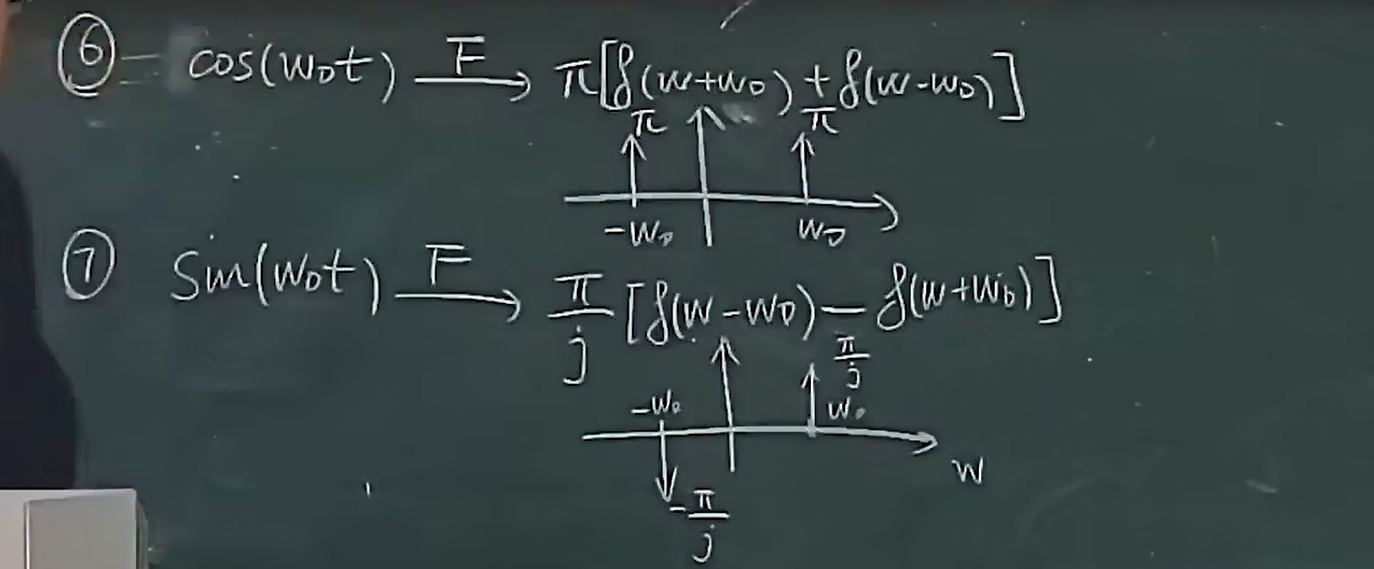 ⑥ cos(w₀t) —F→ π[δ(w+w₀)+δ(w-w₀)]
π π
-w₀ w₀
⑦ Sin(w₀t) —F→ π/j [δ(w-w₀)-δ(w+w₀)]
π/j
-w₀ w₀
w
-π/j